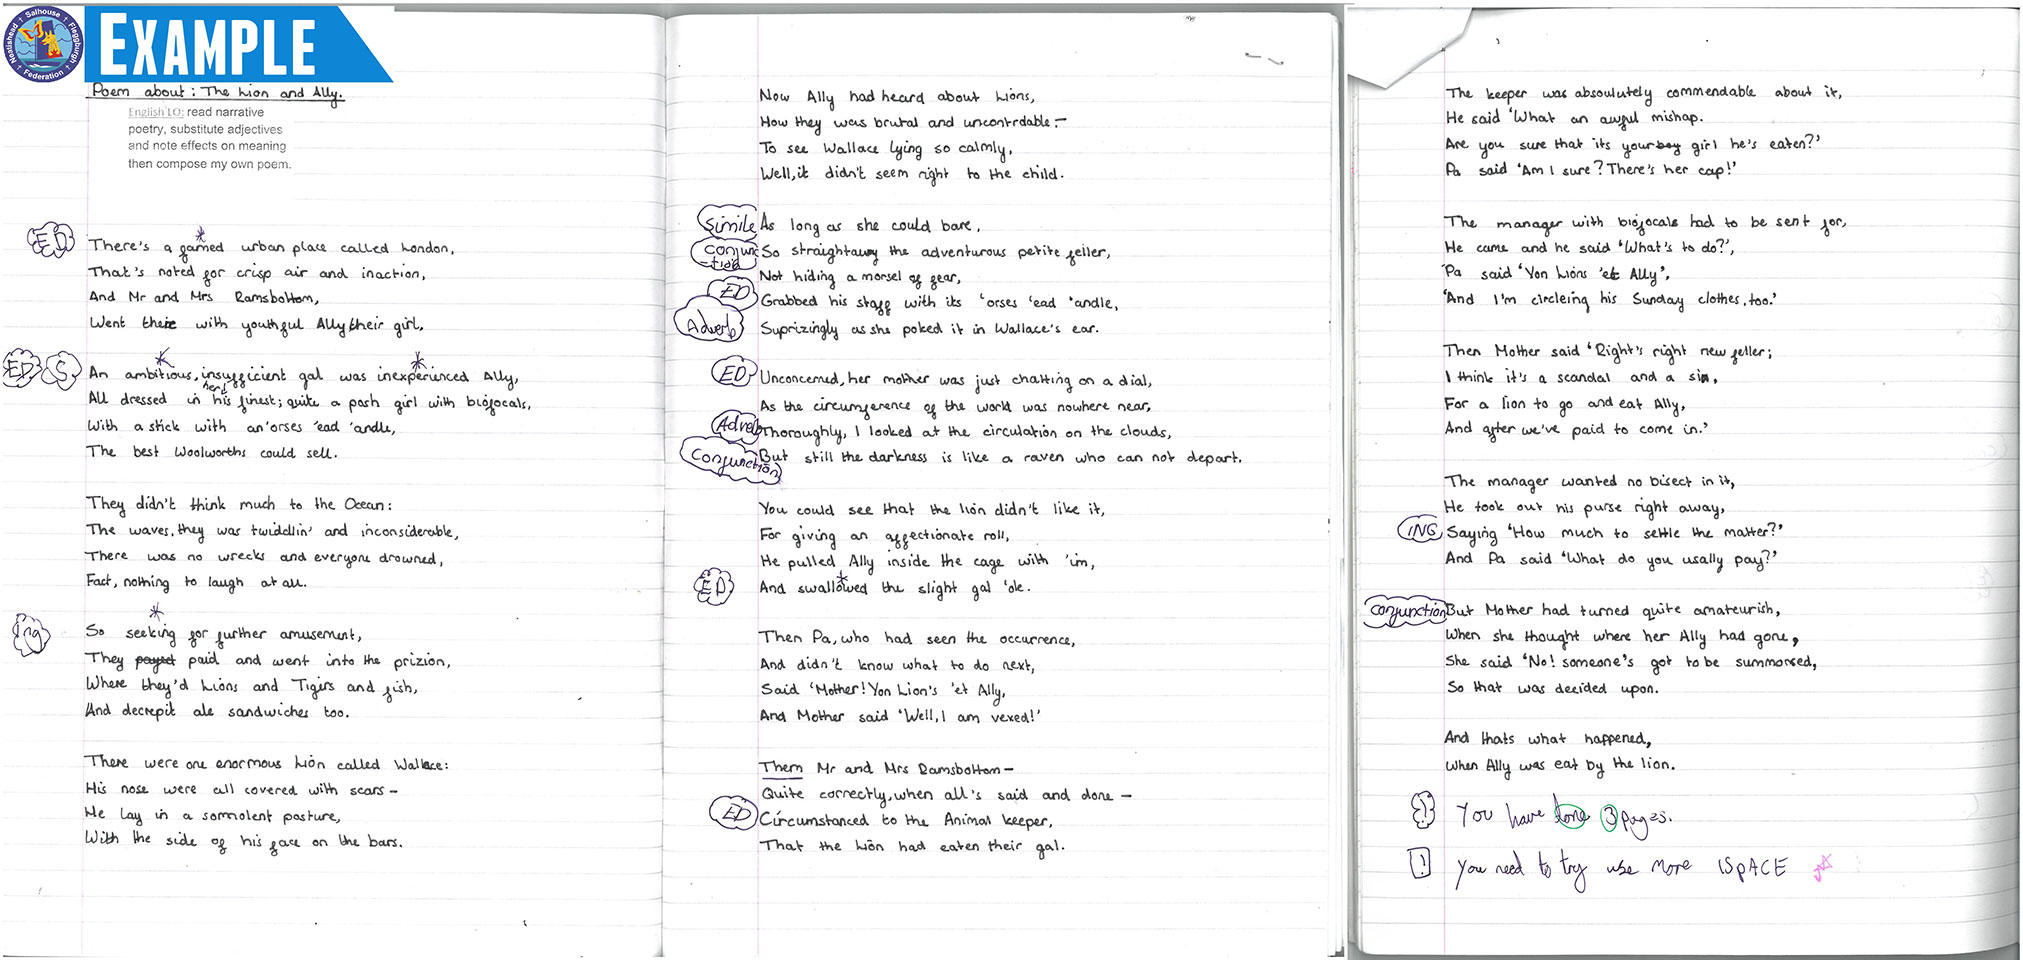 Neatishead † Salhouse † Fleggburgh
† Federation †
EXAMPLE
Poem about: The Lion and Ally.
English LO: read narrative
poetry, substitute adjectives
and note effects on meaning
then compose my own poem.
ED
There's a famed urban place called London,
That's noted for crisp air and inaction,
And Mr and Mrs Ramsbottom,
Went there with youthful Ally their girl.
ED S
An ambitious, insufficient gal was inexperienced Ally,
her
All dressed in his finest; quite a posh girl with bifocals,
With a stick with an 'orses 'ead 'andle,
The best Woolworths could sell.
They didn't think much to the Ocean:
The waves, they was twiddlin' and inconsiderable,
There was no wrecks and everyone drowned,
Fact, nothing to laugh at all.
Ing
So seeking for further amusement,
They payed paid and went into the prizion,
Where they'd Lions and Tigers and fish,
And decrepit ale sandwiches too.
There were one enormous Lion called Wallace:
His nose were all covered with scars -
He lay in a somnolent pasture,
With the side of his face on the bars.
Now Ally had heard about Lions,
How they was brutal and uncontrdable:-
To see Wallace lying so calmly,
Well, it didn't seem right to the child.
Simile As long as she could bare,
conjunc-tion So straightaway the adventurous petite feller,
Not hiding a morsel of fear,
ED Grabbed his staff with its 'orses 'ead 'andle,
Adverb Suprizingly as she poked it in Wallace's ear.
ED Unconcerned, her mother was just chatting on a dial,
As the circumference of the world was nowhere near,
Adverb Thoroughly, I looked at the circulation on the clouds,
Conjunction But still the darkness is like a raven who can not depart.
You could see that the lion didn't like it,
For giving an affectionate roll,
He pulled Ally inside the cage with 'im,
ED And swallowed the slight gal 'ole.
Then Pa, who had seen the occurrence,
And didn't know what to do next,
Said 'Mother! Yon Lion's 'et Ally,
And Mother said 'Well, I am vexed!'
Them Mr and Mrs Ramsbottom-
Quite correctly, when all's said and done -
ED Circumstanced to the Animal keeper,
That the Lion had eaten their gal.
The keeper was absoulutely commendable about it,
He said 'What an awful mishap.
Are you sure that its your boy girl he's eaten?'
Pa said 'Am I sure? There's her cap!'
The manager with biofocals had to be sent for,
He came and he said 'What's to do?',
Pa said 'Yon Lions 'et Ally',
'And I'm circleing his Sunday clothes, too.'
Then Mother said 'Right's right new feller;
I think it's a scandal and a sin,
For a lion to go and eat Ally,
And after we've paid to come in.'
The manager wanted no bisect in it,
He took out his purse right away,
ING Saying 'How much to settle the matter?'
And Pa said 'What do you usally pay?'
conjunction But Mother had turned quite amateurish,
When she thought where her Ally had gone,
She said 'No! someone's got to be summonsed,
So that was decided upon.
And thats what happened,
When Ally was eat by the lion.
! You have done 3 pages.
! You need to try use more ISPACE